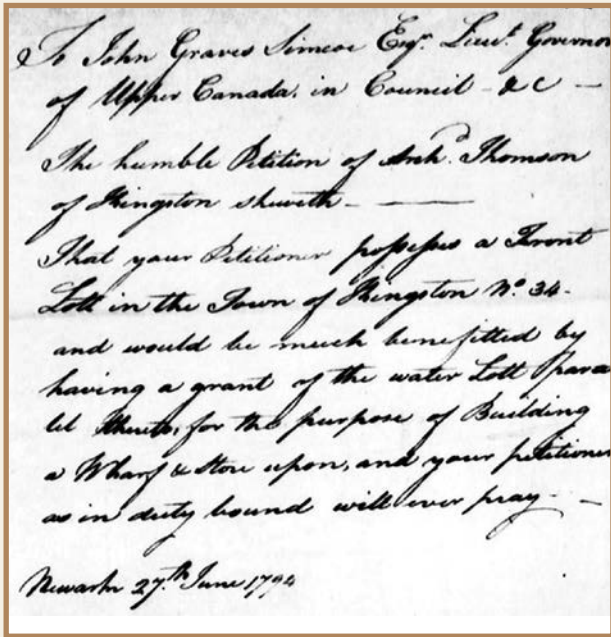 To John Graves Simcoe Esqr. Lieut. Governor
of Upper Canada, in Council - &c -
The humble Petition of Archd. Thomson
of Kingston sheweth -
That your Petitioner possesses a Front
Lott in the Town of Kingston No. 34 -
and would be much benefitted by
having a grant of the water Lott para
lel thereto, for the purpose of Building
a Wharf & Store upon, and your petitioner
as in duty bound will ever pray -
Newark 27.th June 1794